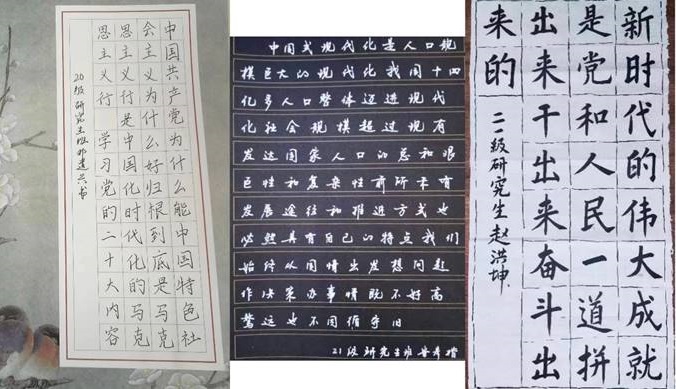 中国共产党为什么能中国特色社
会主义为什么好归根到底是马克
思主义行是中国化时代化的马克
思主义行 学习党的二十大内容
20级研究生班
中国式现代化是人口规
模巨大的现代化我国十四
亿多人口整体迈进现代
化社会规模超过现有
发达国家人口的总和艰
巨性和复杂性前所未有
发展途径和推进方式也
必然具有自己的特点我们
始终从国情出发想问题
作决策办事情既不好高
骛远也不因循守旧
21级研究生班
新时代的伟大成就
是党和人民一道拼
出来干出来奋斗出
来的
二一级研究生 赵洪坤